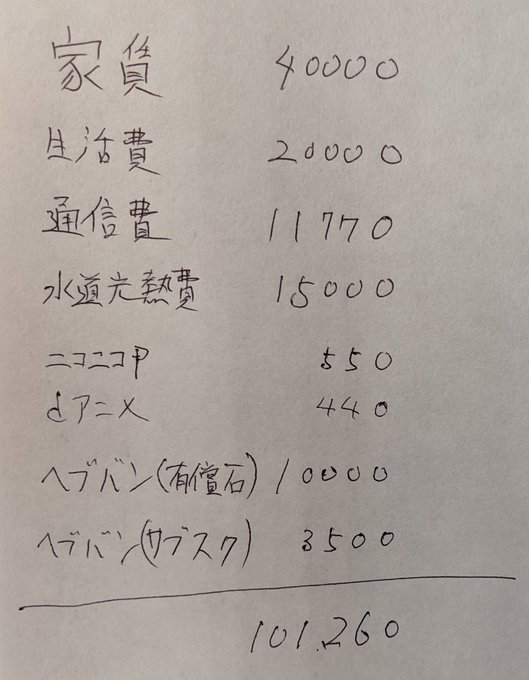 家賃 40000
生活費 20000
通信費 11770
水道光熱費 15000
ニコニコP 550
dアニメ 440
ヘブバン(有償石) 10000
ヘブバン(サブスク) 3500
101,260